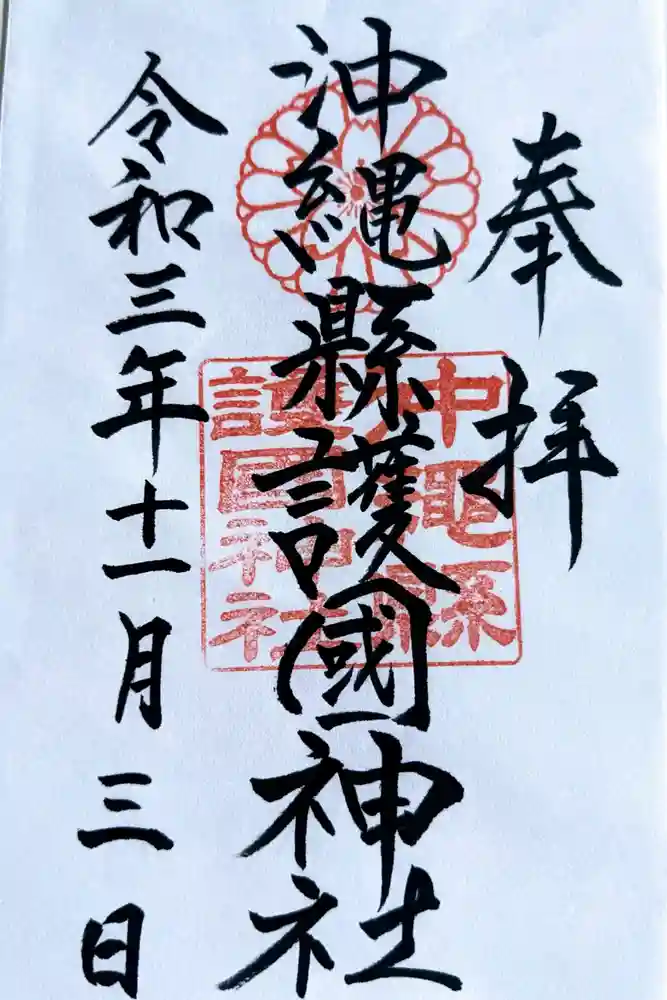 奉拝
沖縄縣護國神社
沖縄縣
護國神社
令和三年十一月三日